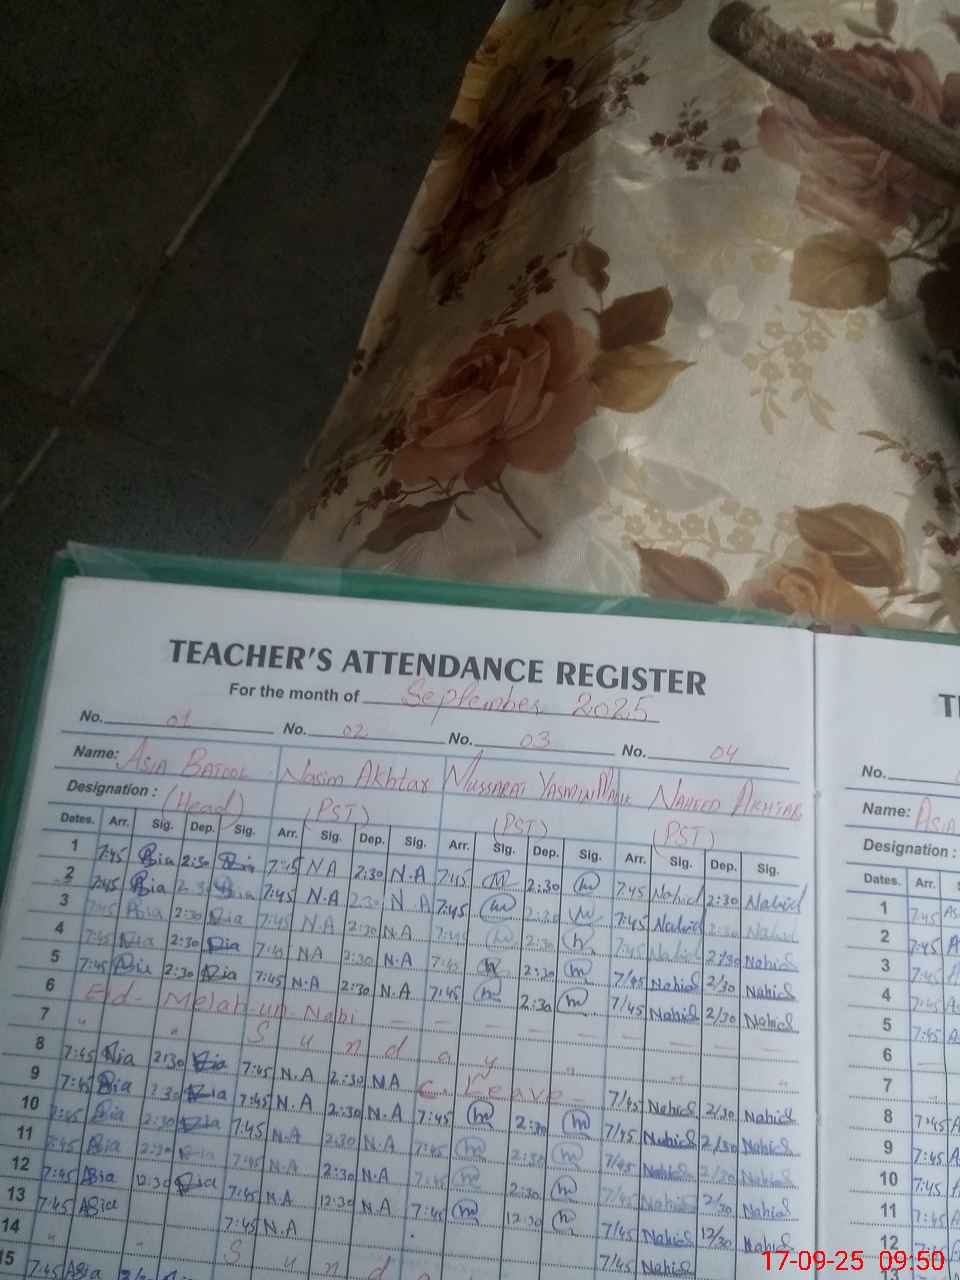 TEACHER'S ATTENDANCE REGISTER
For the month of September 2025
No. 01 No. 02 No. 03 No. 04
Name: ASIA BATOOL Nasim Akhtar MUSSARAT YASMIN NAHEED AKHTAR
Designation : (Head) (PST) (PST) (PST)
Dates. Arr. Sig. Dep. Sig. Arr. Sig. Dep. Sig. Arr. Sig. Dep. Sig. Arr. Sig. Dep. Sig.
1 7:45 2:30 7:45 N A 2:30 N.A 7:45 2:30 7:45 Nahid 2:30 Nahid
2 7:45 2:30 7:45 N.A 2:30 N A 7:45 2:30 7:45 Nahid 2:30 Nahid
3 7:45 2:30 7:45 N.A 2:30 N.A 7:45 2:30 7:45 Nahid 2/30 Nahid
4 7:45 2:30 7:45 NA 2:30 N.A 7:45 2:30 7/45 Nahid 2/30 Nahid
5 7:45 2:30 7:45 N.A 2:30 N.A 7:45 2:30 7/45 Nahid 2/30 Nahid
6 Eid- Melad-un-Nabi
7 " " S u n d a y " " "
8 7:45 2:30 7:45 N.A 2:30 NA C. Leave 7/45 Nahid 2/30 Nahid
9 7:45 2:30 7:45 N.A 2:30 N.A 7:45 2:30 7/45 Nahid 2/30 Nahid
10 7:45 2:30 7:45 N.A 2:30 N.A 7:45 2:30 7/45 Nahid 2/30 Nahid
11 7:45 2:30 7:45 N.A 2:30 N.A 7:45 2:30 7/45 Nahid 2/30 Nahid
12 7:45 12:30 7:45 N.A 12:30 N.A 7:45 12:30 7/45 Nahid 12/30 Nahid
13 7:45 Asia 7:45 N.A 7/45 Nahid
14 " " S u n d a
15 7:45 Asia
No.
Name: ASIA
Designation :
Dates. Arr.
1 7:45
2 7:45
3 7:45
4 7:45
5 7:45
6
7
8 7:45
9 7:45
10 7:45
11 7:45
12 7:45
17-09-25 09:50